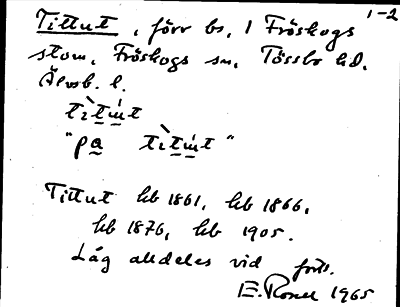 1-2
Tittut, förr bs. I Fröskogs
stom, Fröskogs sn. Tössbo hd.
Älvsb. l.
tìtút
"pa tìtút"
Tittut hb 1861, hb 1866,
hb 1876, hb 1905.
Låg alldeles vid forts.
E. Rosell 1965